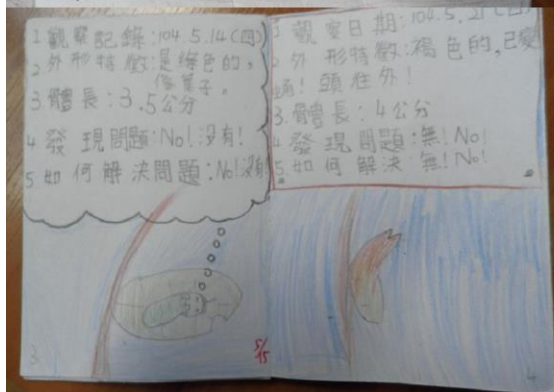 1 觀察記錄:104.5.14(四)
2 外形特徵:是綠色的,
像葉子。
3.體長:3.5公分
4 發現問題:No!沒有!
5 如何解決問題:No!沒有!
3
5/15
1 觀察日期:104.5.21(四)
2 外形特徵:褐色的,已變
蛹!頭在外!
3.體長:4公分
4 發現問題:無!No!
5.如何解決:無!No!
4